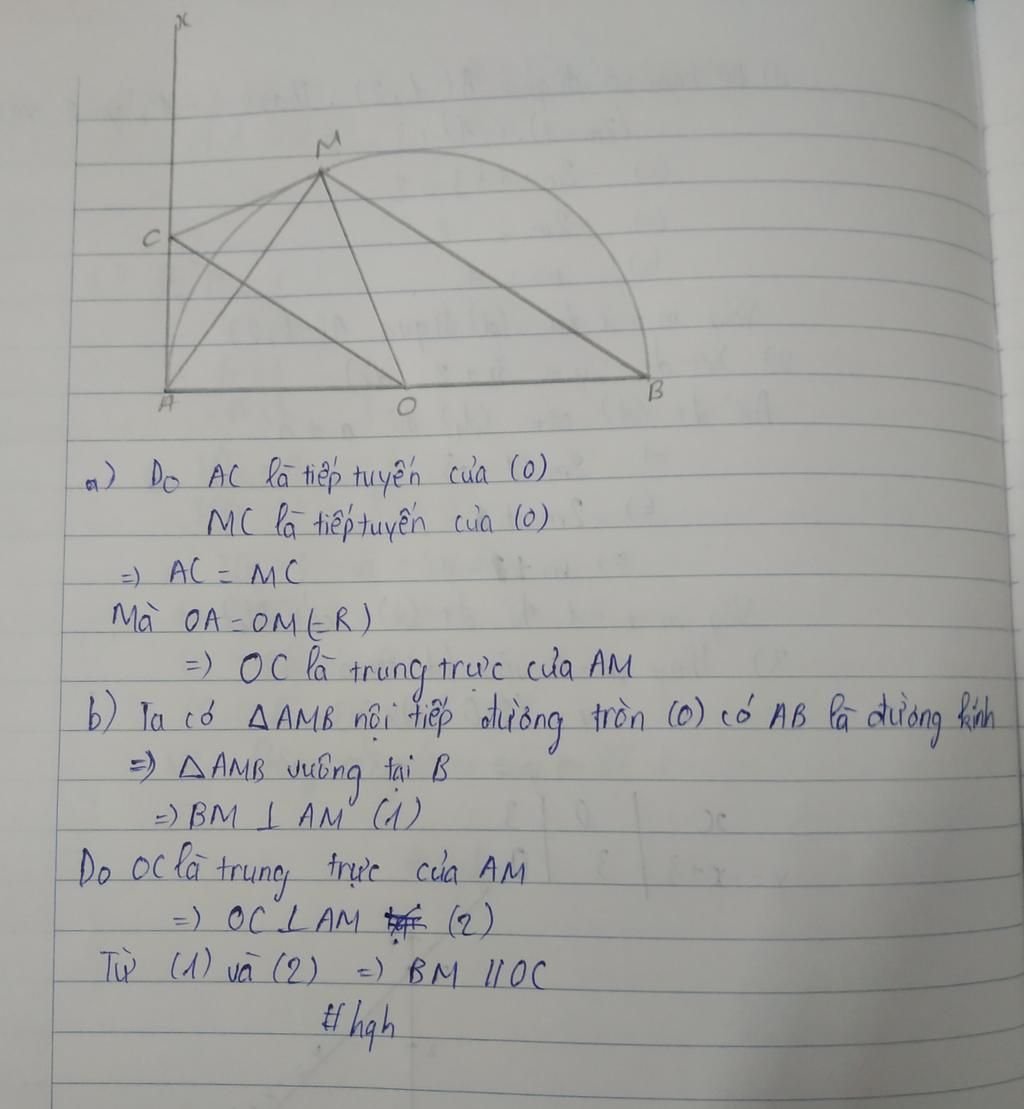 x
M
C
A
O
B
a) Do AC là tiếp tuyến của (O)
MC là tiếp tuyến của (O)
=) AC = MC
Mà OA = OM (=R)
=) OC là trung trực của AM
b) Ta có △AMB nội tiếp đường tròn (O) có AB là đường kính
=) △AMB vuông tại B
=) BM ⊥ AM (1)
Do OC là trung trực của AM
=) OC ⊥ AM (2)
Từ (1) và (2) =) BM // OC
#hqh